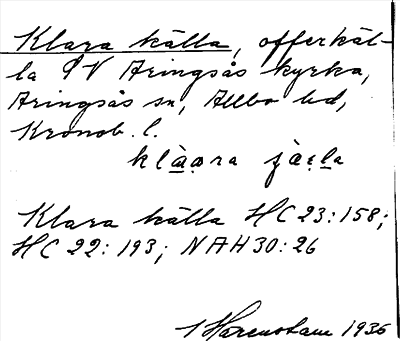 Klara källa, offerkäl-
la SV Aringsås kyrka,
Aringsås sn, Allbo hd,
Kronob. l.
Klara källa HC 23:158;
HC 22:193; NAH 30:26
1936